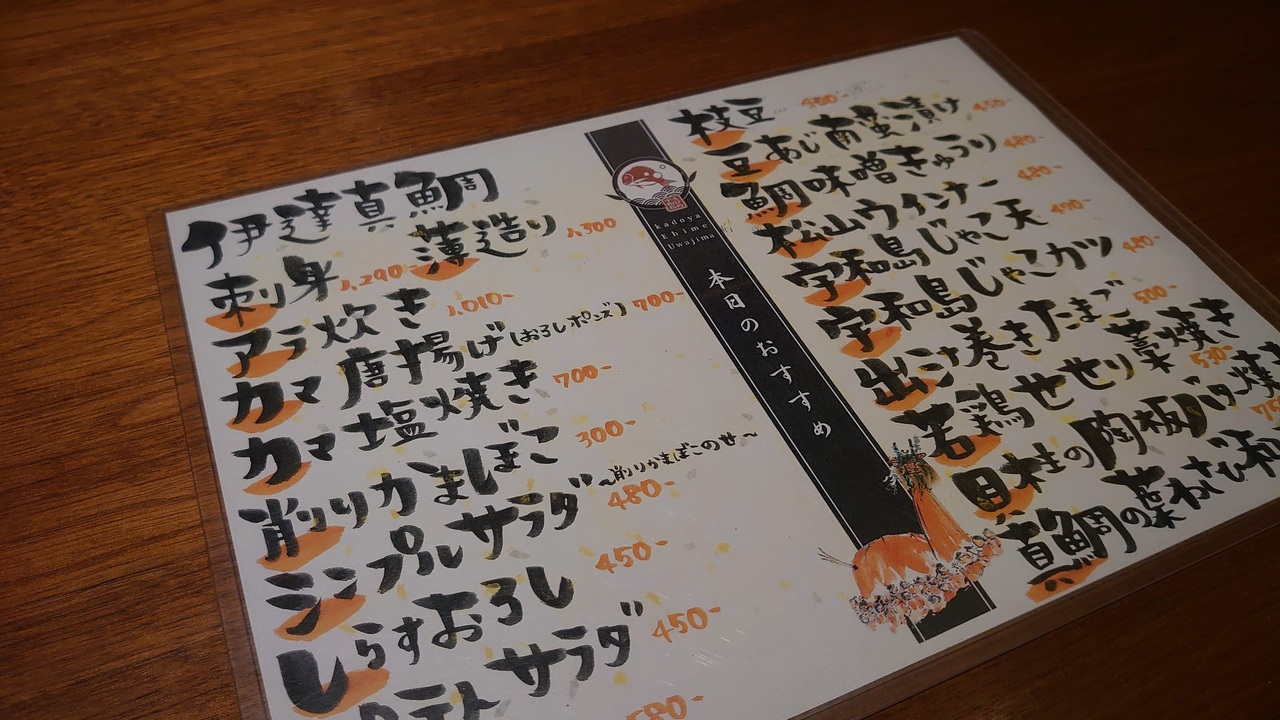 伊達真鯛
刺身 1,290- 薄造り 1,300
アラ炊き 1,010-
カマ 唐揚げ(おろしポン酢) 700-
カマ 塩焼き 700-
削りかまぼこ 300-
シンプルサラダ ~削りかまぼこのせ~ 480-
しらすおろし 450-
ポテトサラダ 450-
580-
kadoya
Ehime
Uwajima
本日のおすすめ
枝豆 400-
豆あじ南蛮漬け 450-
鯛味噌きゅうり 480-
松山ウインナー 480-
宇和島じゃこ天 490-
宇和島じゃこカツ 480-
出汁巻きたまご 500-
若鶏せせり藁焼き 530-
貝柱の陶板バター焼き
真鯛の葉わさび和